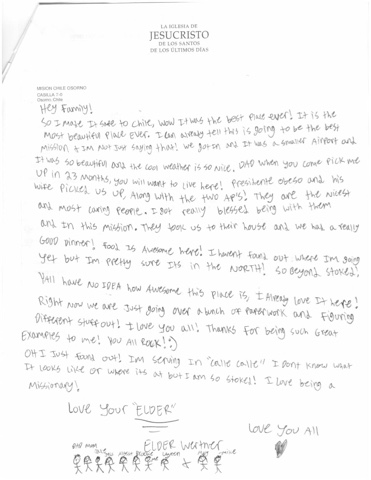 LA IGLESIA DE
JESUCRISTO
DE LOS SANTOS
DE LOS ÚLTIMOS DÍAS
MISION CHILE OSORNO
CASILLA 7-0
Osorno Chile
Hey Family!
So I made It safe to Chile, Wow It was the best place ever! It is the
most beautiful place Ever. I can already tell that this is going to be the best
mission + Im not Just saying that! We got in and It was a smaller Airport and
It was so beautiful and the cool weather is so nice. DAD when you come pick me
up in 23 months, you will want to live here! Presidente Obeso and his
wife Picked us up, along with the two AP's! They are the nicest
and most caring people. I got really blessed being with them
and In this mission. They took us to their house and we had a really
GOOD Dinner! Food Is Awesome here! I haven't fond out where Im going
yet but Im pretty sure Its in the NORTH! So Beyond Stoked!
Y'all have No IDEA how Awesome this place is, I Already love It here!
Right now we are Just going over a bunch of Paperwork and Figuring
Different stuff out! I love you all! Thanks for being such Great
Examples to me! You All Rock! :)
OH I Just found out! Im serving In "Calle Calle" I Don't know what
It looks like or where its at but I am so stoked! I love being a
Missionary!
Love Your "ELDER"
ELDER Wertner
Love You All
DAD MOM